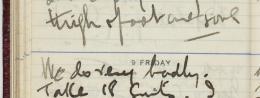 thigh & foot and sore
9 FRIDAY
We do very badly.
Take 18